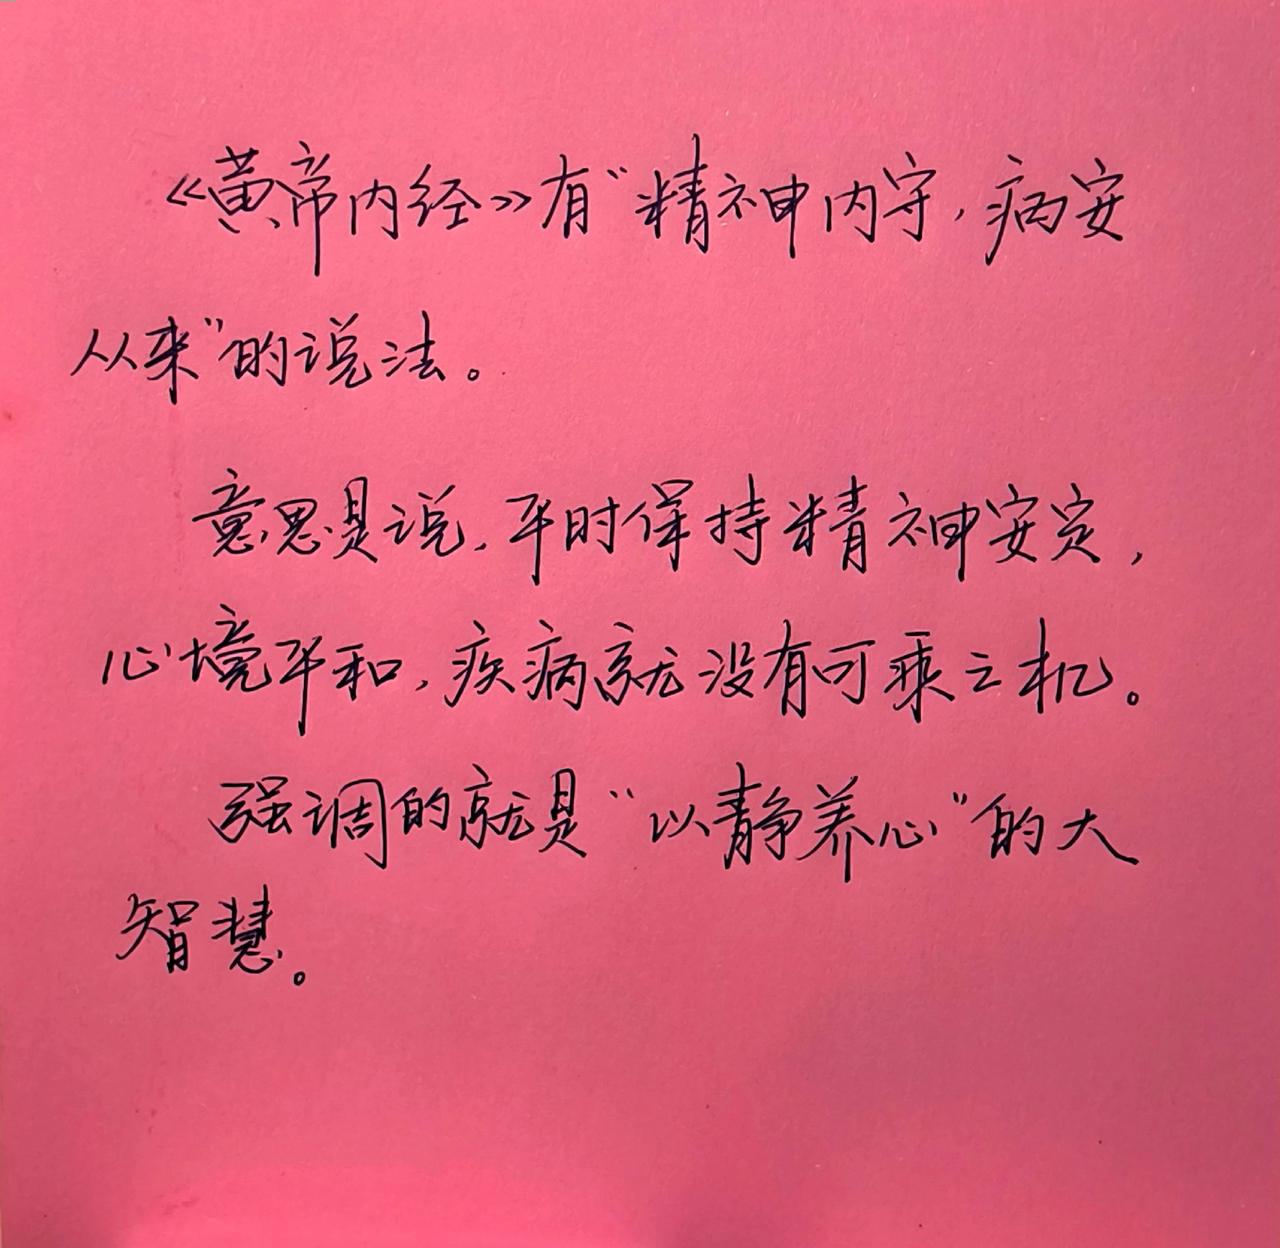 《黄帝内经》有“精神内守，病安
从来”的说法。
意思是说，平时保持精神安定，
心境平和，疾病就没有可乘之机。
强调的就是“以静养心”的大
智慧。